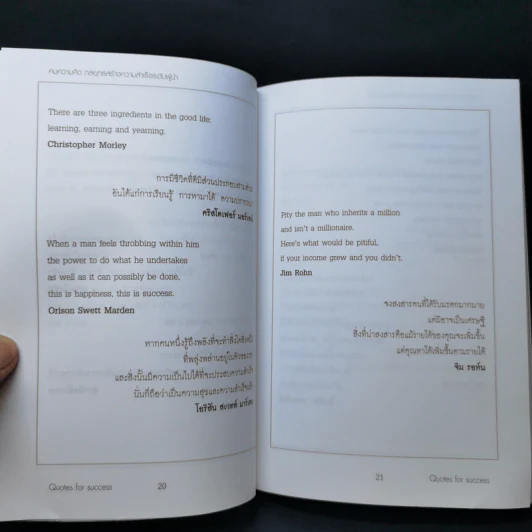 คมความคิด กลยุทธ์สร้างความสำเร็จระดับผู้นำ
There are three ingredients in the good life:
learning, earning and yearning.
Christopher Morley
การมีชีวิตที่ดีมีส่วนประกอบสามส่วน
อันได้แก่การเรียนรู้ การหามาได้ ความปรารถนา
คริสโตเฟอร์ มอร์เลย์
When a man feels throbbing within him
the power to do what he undertakes
as well as it can possibly be done,
this is happiness, this is success.
Orison Swett Marden
หากคนหนึ่งรู้ถึงพลังที่จะทำสิ่งใดสิ่งหนึ่ง
ที่พลุ่งพล่านอยู่ในตัวของเรา
และสิ่งนั้นมีความเป็นไปได้ที่จะประสบความสำเร็จ
นั่นก็ถือว่าเป็นความสุขและความสำเร็จแล้ว
โอริสัน สเวทท์ มาร์เดน
Quotes for success 20
Pity the man who inherits a million
and isn't a millionaire.
Here's what would be pitiful,
if your income grew and you didn't.
Jim Rohn
จงสงสารคนที่ได้รับมรดกมากมาย
แต่มิอาจเป็นเศรษฐี
สิ่งที่น่าสงสารคือแม้รายได้ของคุณจะเพิ่มขึ้น
แต่คุณหาได้เพิ่มขึ้นตามรายได้
จิม รอห์น
21 Quotes for success